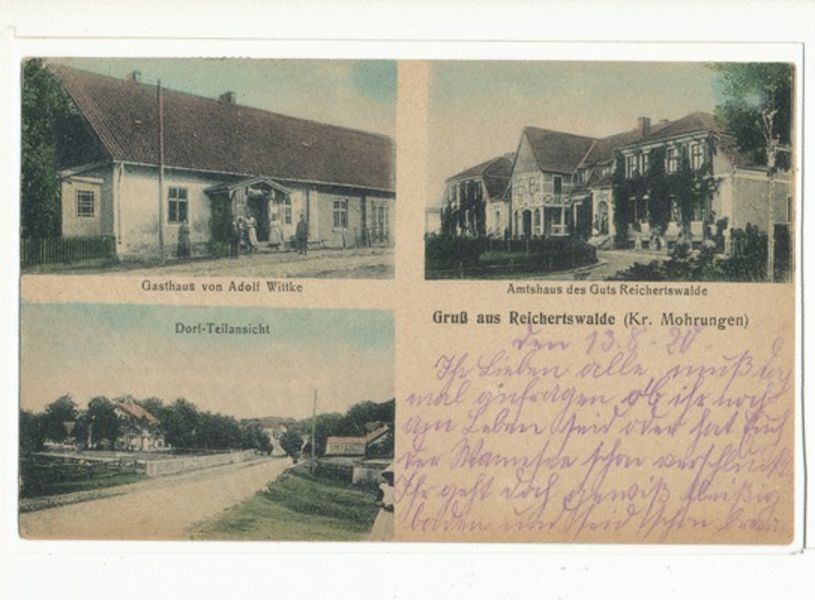 Gasthaus von Adolf Wittke
Amtshaus des Guts Reichertswalde
Dorf-Teilansicht
Gruß aus Reichertswalde (Kr. Mohrungen)
den 13.8.20
Ihr Lieben alle muß ich
mal anfragen ob ihr noch
am Leben seid oder hat Euch
der Wannsee schon verschluckt
Ihr geht doch gewiß fleißig
baden und seid schon